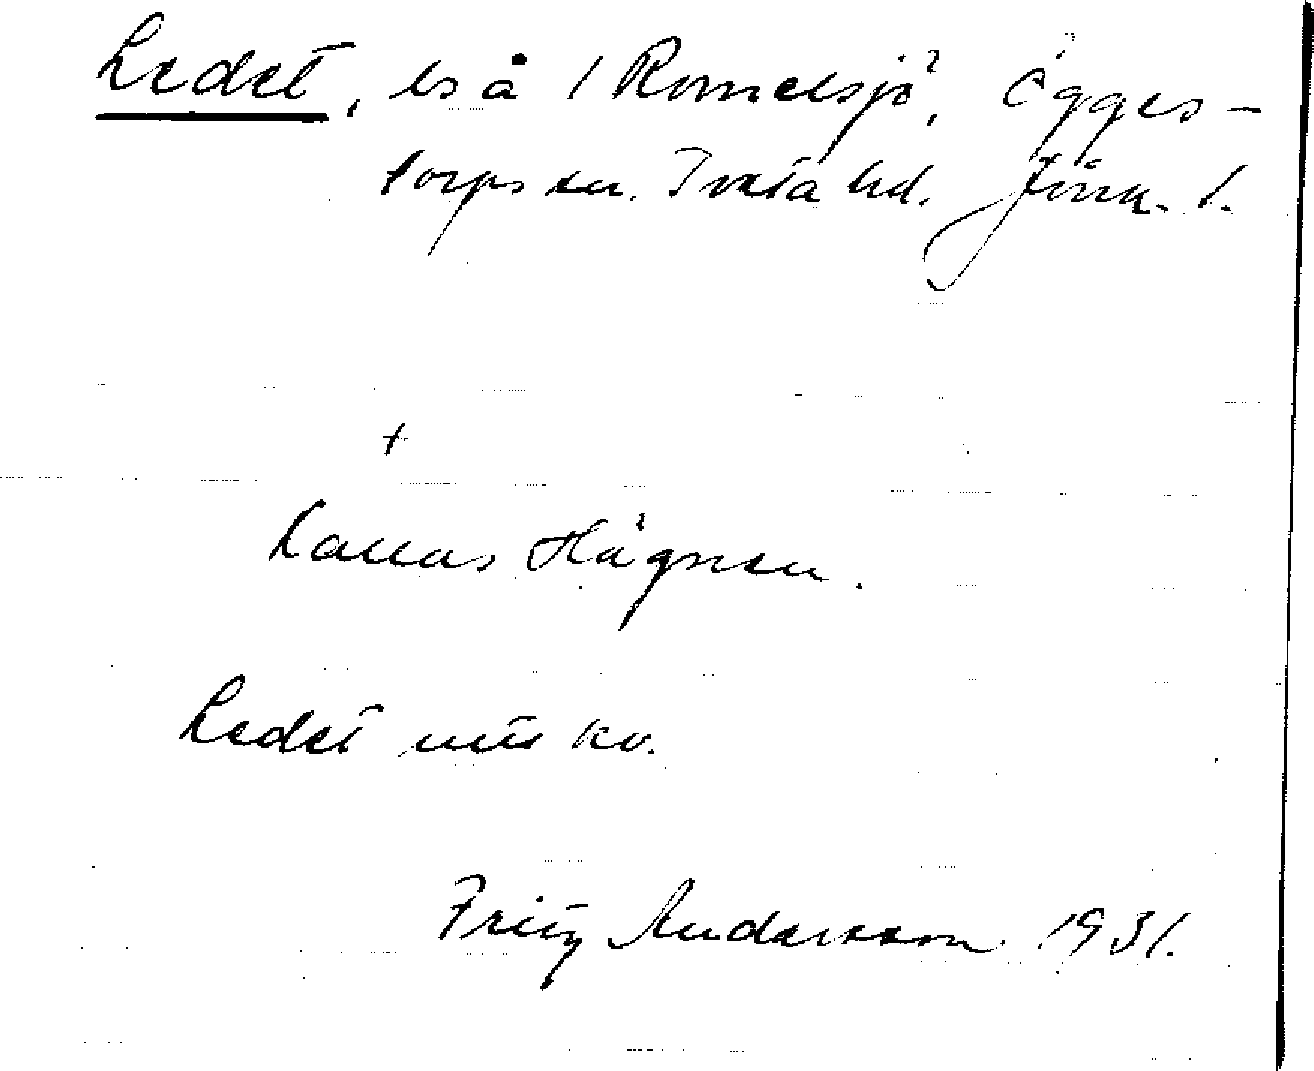 Ledet, ls å / Romelsjö, Ögges-
torps sn. Tveta hd. Jönk. l.
+
Kallas Hägnen.
Ledet uttr kv.
Fritz Andersson 1931.